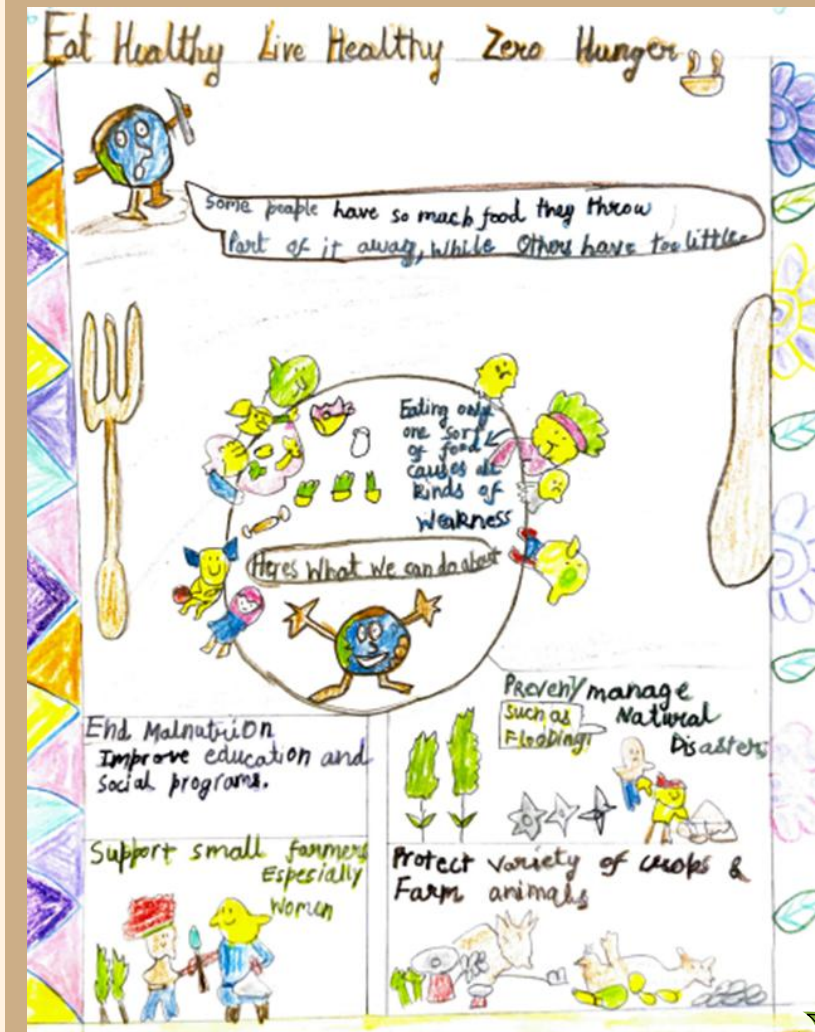 Eat Healthy Live Healthy Zero Hunger
Some people have so much food they throw
Part of it away, While Others have too little.
Eating only
one sort
of food
causes all
kinds of
Weakness
Heres What We can do about
End Malnutrion
Improve education and
social programs.
Prevent/manage
Such as
Flooding!
Natural
Disasters
Support small farmers
Especially
Women
Protect variety of crops &
Farm animals